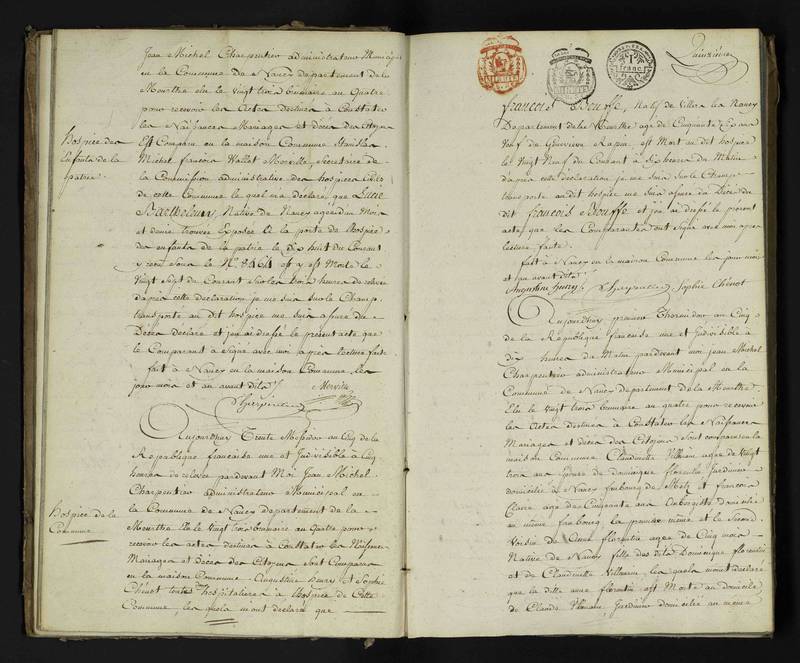 Jean Michel Charpentier administrateur Municipal
en la Commune de Nancy departement de la
Meurthe elu le vingt trois brumaire an Quatre
pour recevoir les Actes destinés à Constater
les Naissances Mariages et décès des Citoyens
Est Comparu en la maison Commune Stanislas
Hospice des
Enfants de la
patrie
Michel francois Vallet Merville, Secretaire de
la Commission administrative des hospices Civils
de cette Commune le quel m'a déclaré, que Lucie
Barthelemy, Native de Nancy agée d'un Mois
et demie trouvée Exposée à la porte de l'hospice
des enfants de la patrie le dix huit du Courant
y reçu sous le N.º 8464 est y est Morte le
Vingt Sept du Courant sur les trois heures de relevée
d'après cette declaration je me suis sur le Champ
transporté au dit hospice me suis assuré du
Décès Declaré et j'en ai dressé le présent acte que
le Comparant a Signé avec moi après lecture faite
fait à Nancy en la maison Commune les
jour mois et an avant dits
Merville
Charpentier
Aujourdhuy Trente Messidor an Cinq de la
République francaise une et Indivisible à Cinq
heures de relevée pardevant Moi Jean Michel
Charpentier administrateur Municipal en
Hospice de la
Commune
la Commune de Nancy departement de la
Meurthe Elu le Vingt trois brumaire an Quatre pour
recevoir les actes destinés à Constater les Naissances
Mariages et Décès des Citoyens Sont Comparus
en la maison Commune Augustine henry et Sophie
Chénot toutes hospitalieres à l'hospice de Cette
Commune, les quels m'ont déclaré que
Quinzieme
1 franc
francois Bouffe, Natif de Villers les Nancy
Departement de la Meurthe agé de Cinquante
Veuf de Genevieve, est Mort au dit hospice
le Vingt Neuf du Courant à dix heures du Matin
d'après cette déclaration je me suis sur le Champ
transporté au dit hospice me suis assuré du Décès du
dit francois Bouffe et j'en ai dressé le présent
acte que les Comparantes ont Signé avec moi après
lecture faite.
fait à Nancy en la maison Commune les jour mois
et an avant dits
Augustine henry Charpentier Sophie Chénot
Aujourdhuy premier Thermidor an Cinq
de la République francaise une et Indivisible à
dix heures du Matin pardevant moi jean Michel
Charpentier administrateur Municipal en la
Commune de Nancy departement de la Meurthe
Elu le vingt trois brumaire an quatre pour recevoir
les Actes destinés à Constater les Naissances
Mariages et décès des Citoyens Sont comparus en la
maison Commune Claudinette Villaume agée de Vingt
trois ans Epouse de dominique florentin Jardinier
domiciliée à Nancy faubourg de Metz et francois
Claire agé de Cinquante ans Aubergiste domicilié
au même faubourg la premiere mere et le Second
Voisin de Anne florentin agée de Cinq mois
Native de Nancy fille des dits Dominique florentin
et de Claudinette Villaume, les quels m'ont declaré
que la ditte anne florentin est Morte au domicile
de Claude Villaume, Jardinier domicilié au meme